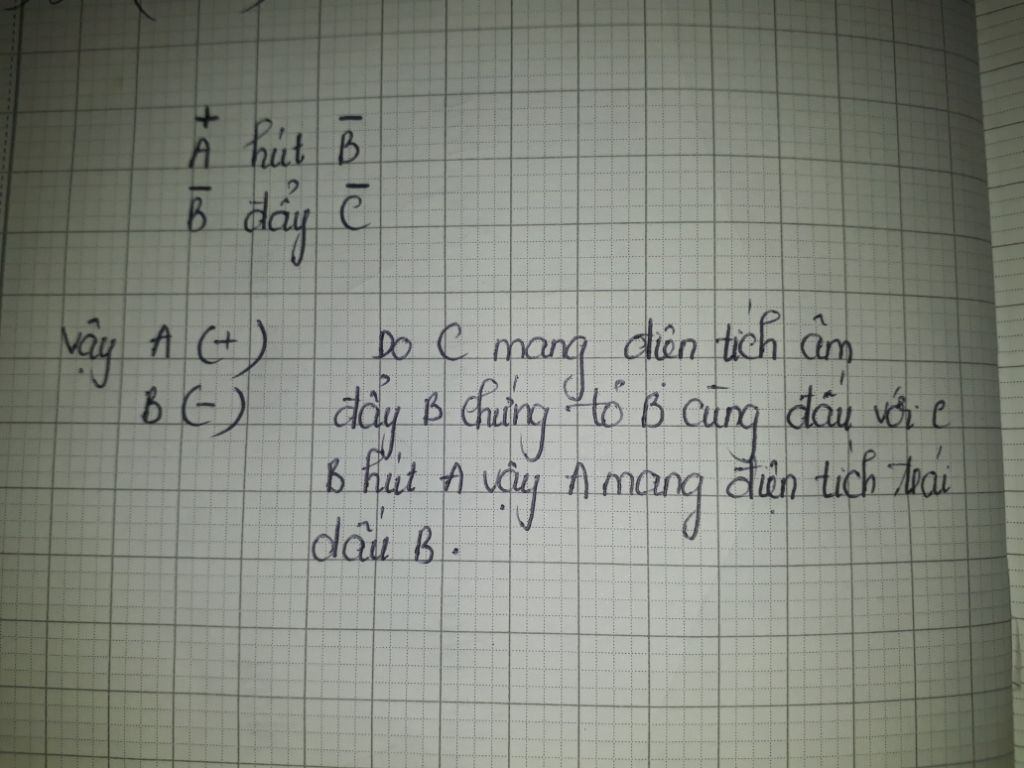 + −
A hút B
− −
B đẩy C
Vậy A (+) Do C mang diện tích âm
B (−) đẩy B chứng tỏ B cùng dấu với C
B hút A vậy A mang điện tích trái
dấu B.